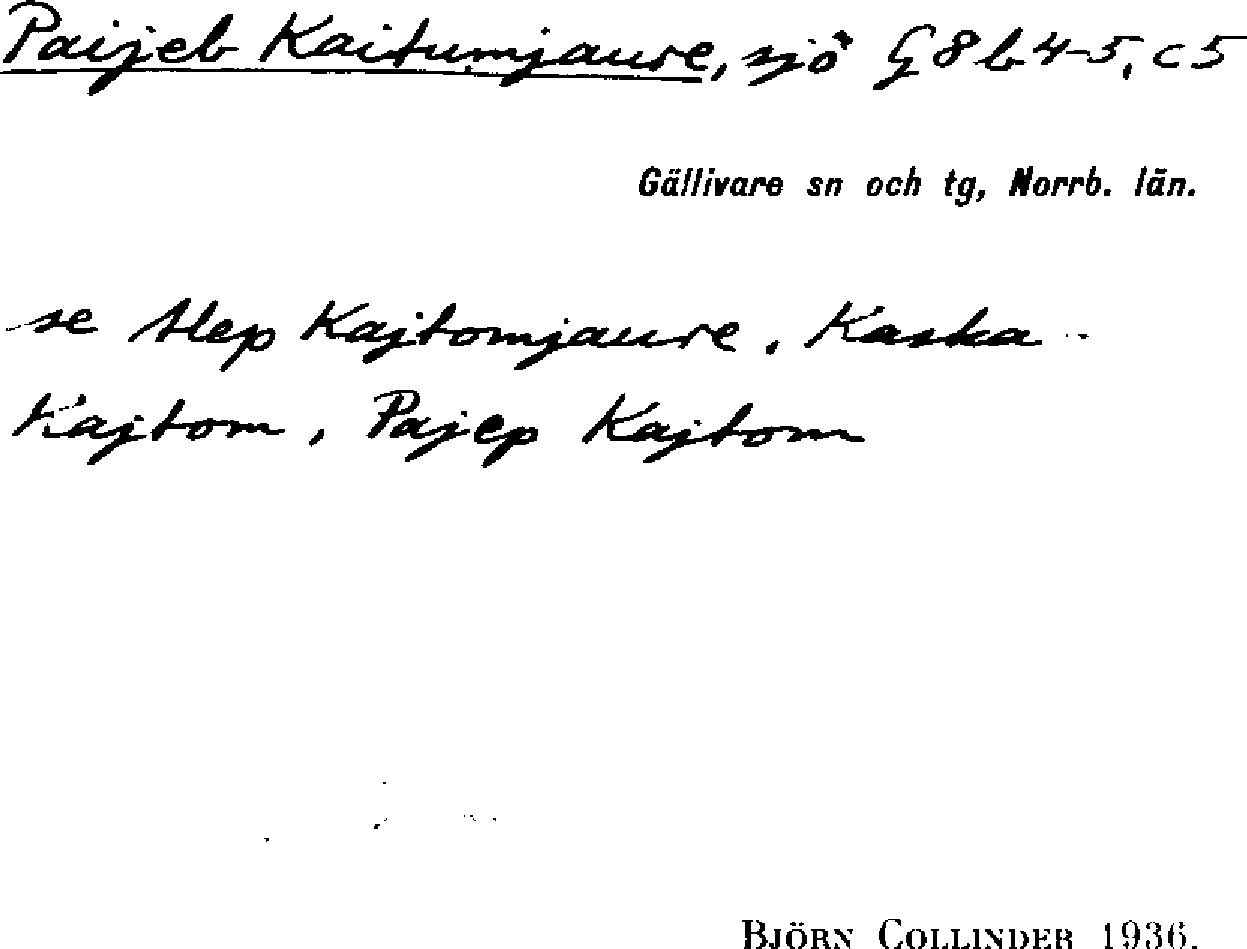 Paijeb Kaitumjaure, sjö G8b4-5, c5
Gällivare sn och tg, Norrb. län.
se Allep Kajtomjaure, Kaska-
Kajtom, Pajep Kajtom
BJÖRN COLLINDER 1936.